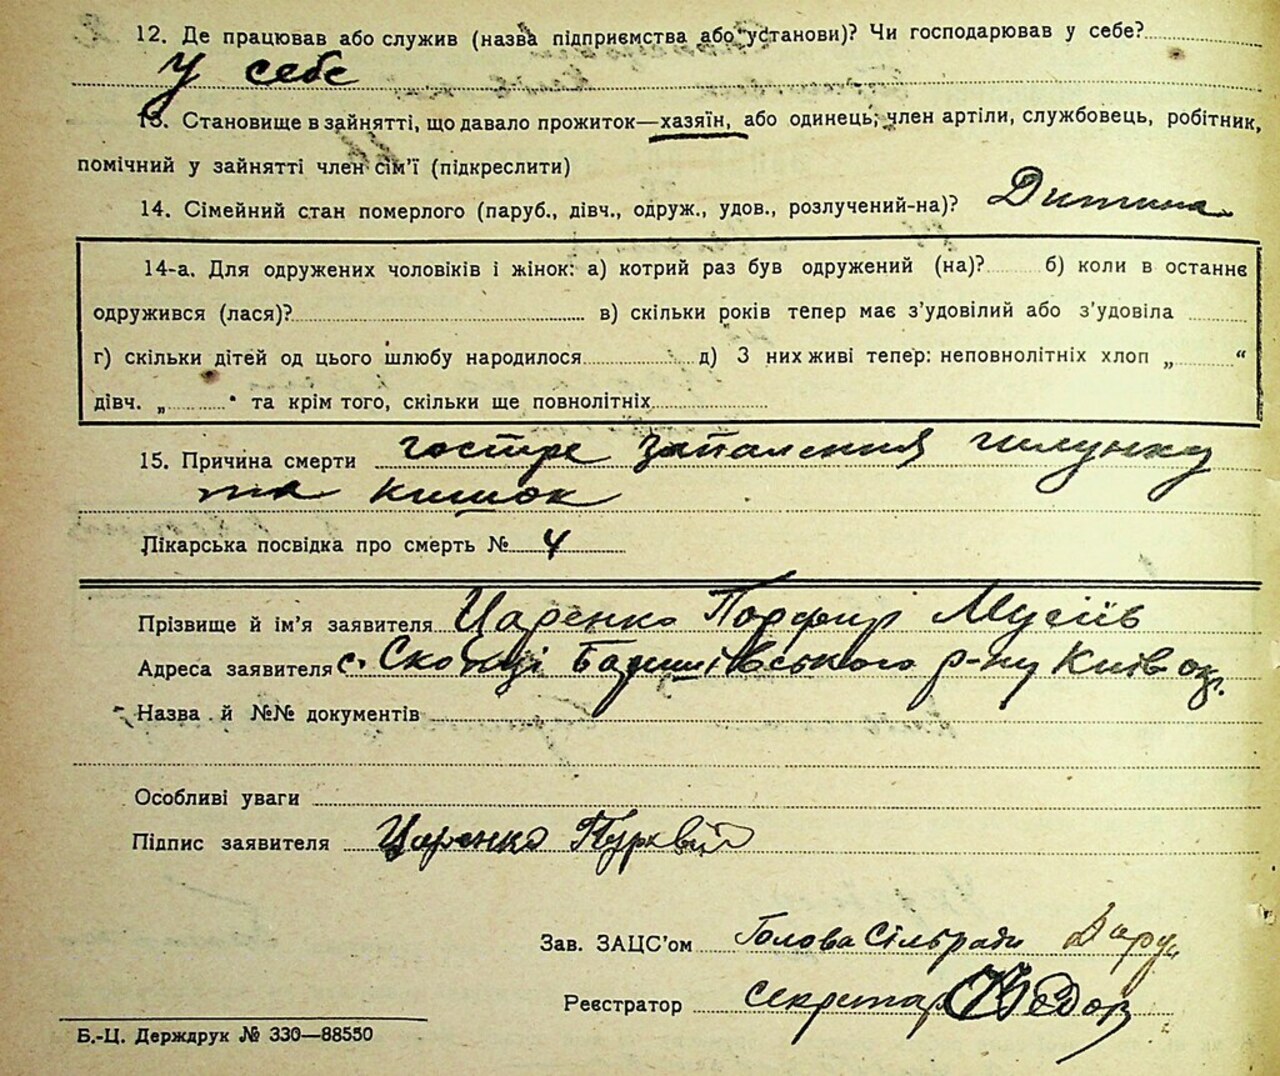 12. Де працював або служив (назва підприємства або установи)? Чи господарював у себе?
У себе
13. Становище в зайнятті, що давало прожиток—хазяїн, або одинець, член артіли, службовець, робітник,
помічний у зайнятті член сім'ї (підкреслити)
14. Сімейний стан померлого (паруб., дівч., одруж., удов., розлучений-на)? Дитина
14-а. Для одружених чоловіків і жінок: а) котрий раз був одружений (на)? б) коли в останнє
одружився (лася)? в) скільки років тепер має з'удовілий або з'удовіла
г) скільки дітей од цього шлюбу народилося д) З них живі тепер: неповнолітніх хлоп „ “
дівч. „ “ та крім того, скільки ще повнолітніх
15. Причина смерти гостре запалення шлунку
та кишок
Лікарська посвідка про смерть № 4
Прізвище й ім'я заявителя Царенко Порфир Мусіїв
Адреса заявителя с. Скопці Баришівського р-ну Київ ок.
Назва й №№ документів
Особливі уваги
Підпис заявителя Царенко
Зав. ЗАЦС'ом Голова Сільради
Реєстратор секретар
Б.-Ц. Держдрук № 330—88550